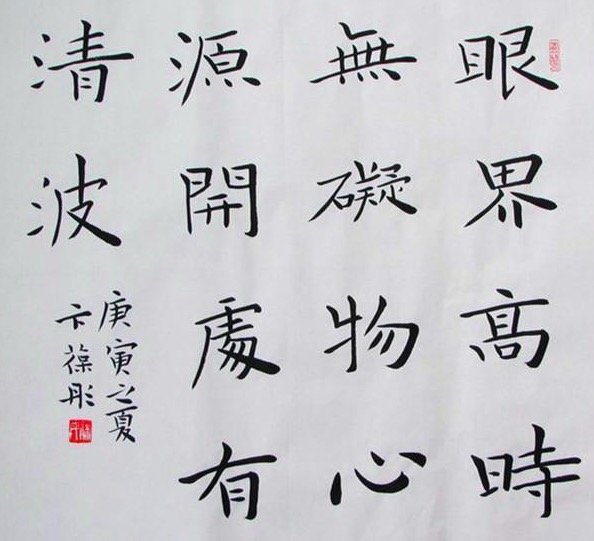 眼界高時
無礙物心
源開處有
清波
庚寅之夏
卞葆彤